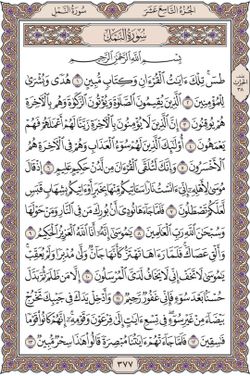 سُورَةُ النَّمْلِ
الجُزْءُ التَّاسِعَ عَشَرَ
سُورَةُ النَّمْلِ
بِسْمِ اللَّهِ الرَّحْمَٰنِ الرَّحِيمِ
طسٓ تِلْكَ ءَايَٰتُ الْقُرْءَانِ وَكِتَابٍ مُّبِينٍ ١ هُدًى وَبُشْرَىٰ
لِلْمُؤْمِنِينَ ٢ الَّذِينَ يُقِيمُونَ الصَّلَوٰةَ وَيُؤْتُونَ الزَّكَوٰةَ وَهُم بِالْءَاخِرَةِ
هُمْ يُوقِنُونَ ٣ إِنَّ الَّذِينَ لَا يُؤْمِنُونَ بِالْءَاخِرَةِ زَيَّنَّا لَهُمْ أَعْمَٰلَهُمْ فَهُمْ
يَعْمَهُونَ ٤ أُو۟لَٰٓئِكَ الَّذِينَ لَهُمْ سُوٓءُ الْعَذَابِ وَهُمْ فِي الْءَاخِرَةِ هُمُ
الْأَخْسَرُونَ ٥ وَإِنَّكَ لَتُلَقَّى الْقُرْءَانَ مِن لَّدُنْ حَكِيمٍ عَلِيمٍ ٦ إِذْ قَالَ
مُوسَىٰ لِأَهْلِهِۦٓ إِنِّيٓ ءَانَسْتُ نَارًا سَـَٔاتِيكُم مِّنْهَا بِخَبَرٍ أَوْ ءَاتِيكُم بِشِهَابٍ قَبَسٍ
لَّعَلَّكُمْ تَصْطَلُونَ ٧ فَلَمَّا جَآءَهَا نُودِيَ أَنۢ بُورِكَ مَن فِي النَّارِ وَمَنْ حَوْلَهَا
وَسُبْحَٰنَ اللَّهِ رَبِّ الْعَٰلَمِينَ ٨ يَٰمُوسَىٰٓ إِنَّهُۥٓ أَنَا اللَّهُ الْعَزِيزُ الْحَكِيمُ ٩
وَأَلْقِ عَصَاكَ فَلَمَّا رَءَاهَا تَهْتَزُّ كَأَنَّهَا جَآنٌّ وَلَّىٰ مُدْبِرًا وَلَمْ يُعَقِّبْ
يَٰمُوسَىٰ لَا تَخَفْ إِنِّي لَا يَخَافُ لَدَيَّ الْمُرْسَلُونَ ١٠ إِلَّا مَن ظَلَمَ ثُمَّ بَدَّلَ
حُسْنًۢا بَعْدَ سُوٓءٍ فَإِنِّي غَفُورٌ رَّحِيمٌ ١١ وَأَدْخِلْ يَدَكَ فِي جَيْبِكَ تَخْرُجْ
بَيْضَآءَ مِنْ غَيْرِ سُوٓءٍ فِي تِسْعِ ءَايَٰتٍ إِلَىٰ فِرْعَوْنَ وَقَوْمِهِۦٓ إِنَّهُمْ كَانُوا۟ قَوْمًا
فَٰسِقِينَ ١٢ فَلَمَّا جَآءَتْهُمْ ءَايَٰتُنَا مُبْصِرَةً قَالُوا۟ هَٰذَا سِحْرٌ مُّبِينٌ ١٣
٣٧٧